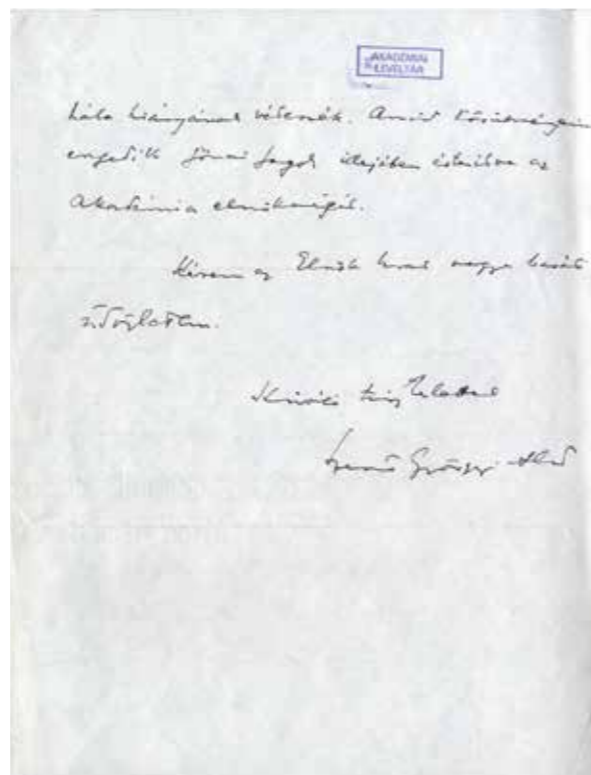 AKADÉMIAI
LEVÉLTÁR
hála hiányának vélenék. Amint körülményeim
engedik jönni fogok idejében értesítve az
Akadémia elnökségét.
Kérem az Elnök urat vegye baráti
üdvözletem.
Kiváló tisztelettel
Szent Györgyi Albert